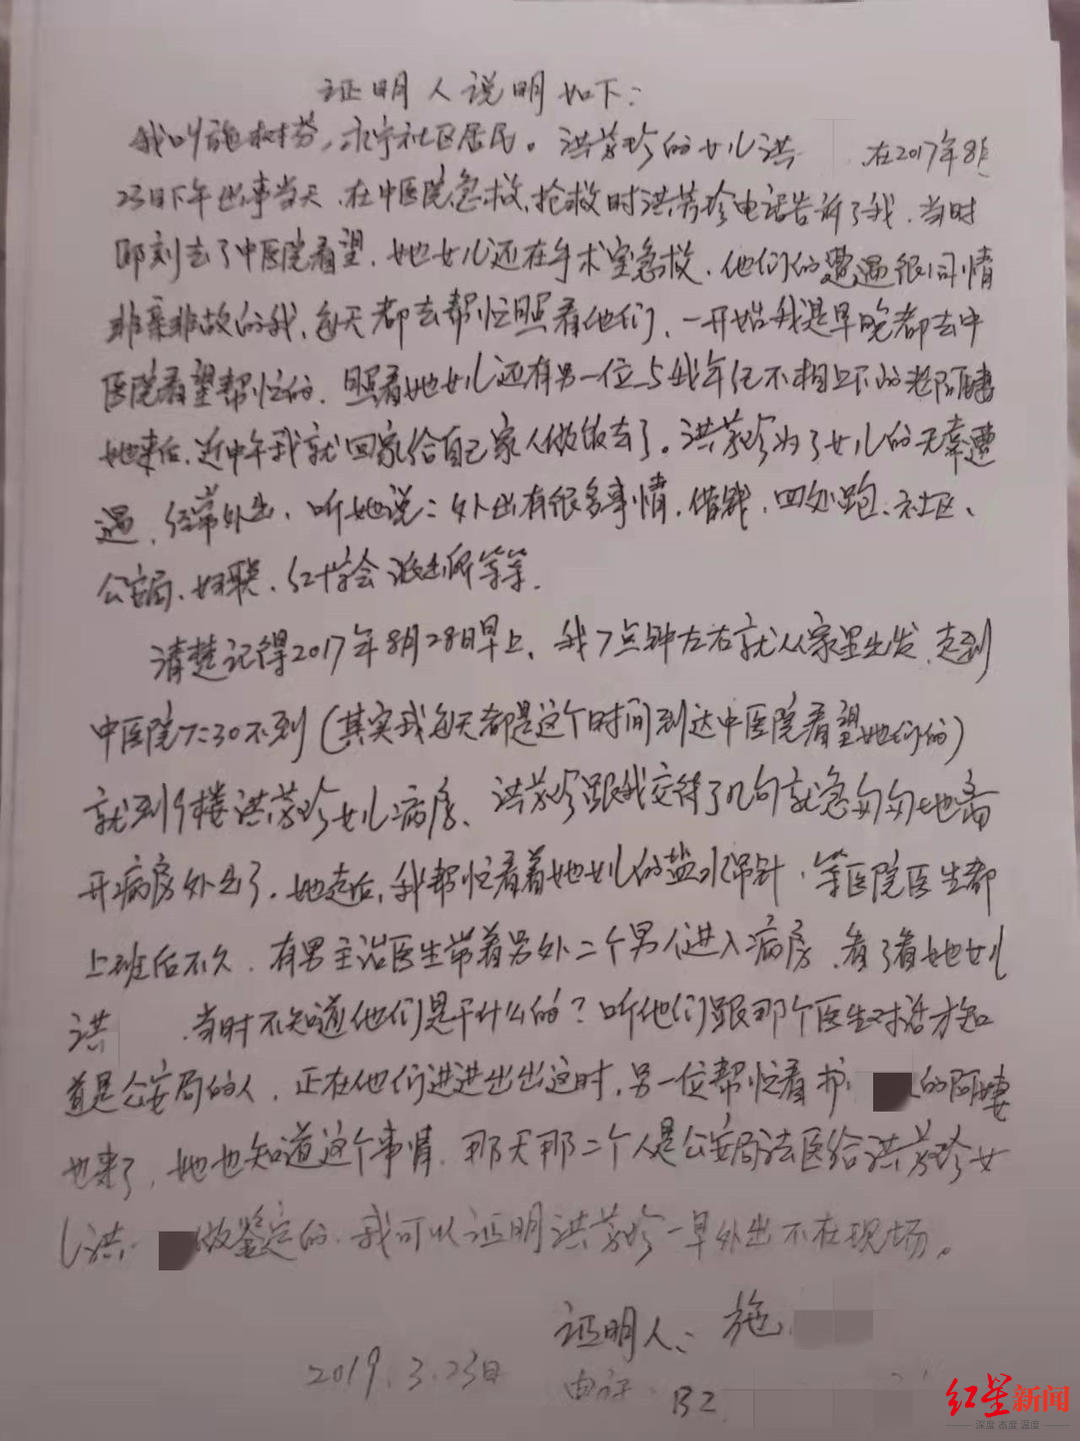 证明人说明如下：
我叫施树芬，永宁社区居民。洪芳珍的女儿洪 在2017年8月
23日下午出事当天、在中医院急救、抢救时洪芳珍电话告诉了我，当时
即刻去了中医院看望，她女儿还在手术室急救，他们的遭遇很同情
非亲非故的我，每天都去帮忙照看他们，一开始我是早晚都去中
医院看望帮忙的，照看她女儿还有另一位与我年纪不相上下的老阿姨
她来后，近中午我就回家给自己家人做饭去了。洪芳珍为了女儿的无辜遭
遇，经常外出，听她说：外出有很多事情，借钱，四处跑、社区、
公安局、妇联、红十字会派出所等等．
请楚记得2017年8月28日早上，我7点钟左右就从家里出发，走到
中医院7:30不到（其实我每天都是这个时间到达中医院看望她们的）
就到9楼洪芳珍女儿病房、洪芳珍跟我交待了几句就急匆匆地离
开病房外出了，她走后，我帮忙看着她女儿的盐水吊针，等医院医生都
上班后不久，有男主治医生带着另外二个男人进入病房，看了看她女儿
洪 ，当时不知道他们是干什么的？听他们跟那个医生对话才知
道是公安局的人，正在他们进进出出这时，另一位帮忙看护 的阿姨
也来了，她也知道这个事情，那天那二个人是公安局法医给洪芳珍女
儿洪 做鉴定的，我可以证明洪芳珍一早外出不在现场。
证明人：施
2019.3.23日
电话：132
红星新闻
深度 态度 温度